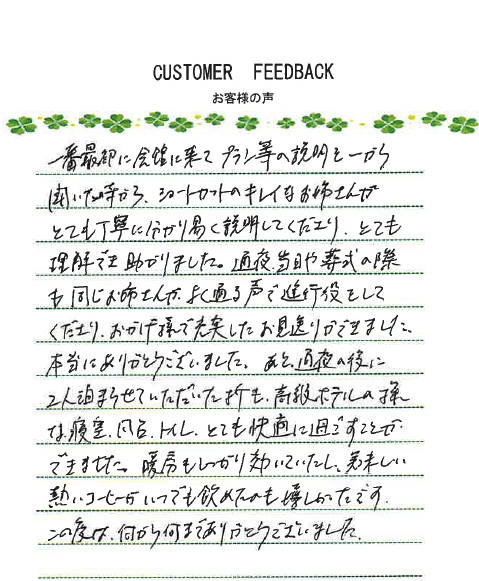 CUSTOMER FEEDBACK
お客様の声
一番最初に会館に来て プラン等の説明を一から
聞いた時から、ショートカットのキレイなお姉さんが
とても丁寧に分かり易く説明してくださり、とても
理解でき助かりました。通夜、当日や葬式の際
も同じお姉さんが、よく通る声で進行役をして
くださり、おかげ様で充実したお見送りができました、
本当にありがとうございました。あと、通夜の後に
2人泊まらせていただいた折も、高級ホテルの様
な寝室、風呂、トイレ、とても快適に過ごすことが
できました。暖房もしっかり効いていたし、美味しい
熱いコーヒーがいつでも飲めたのも嬉しかったです。
この度は、何から何までありがとうございました。